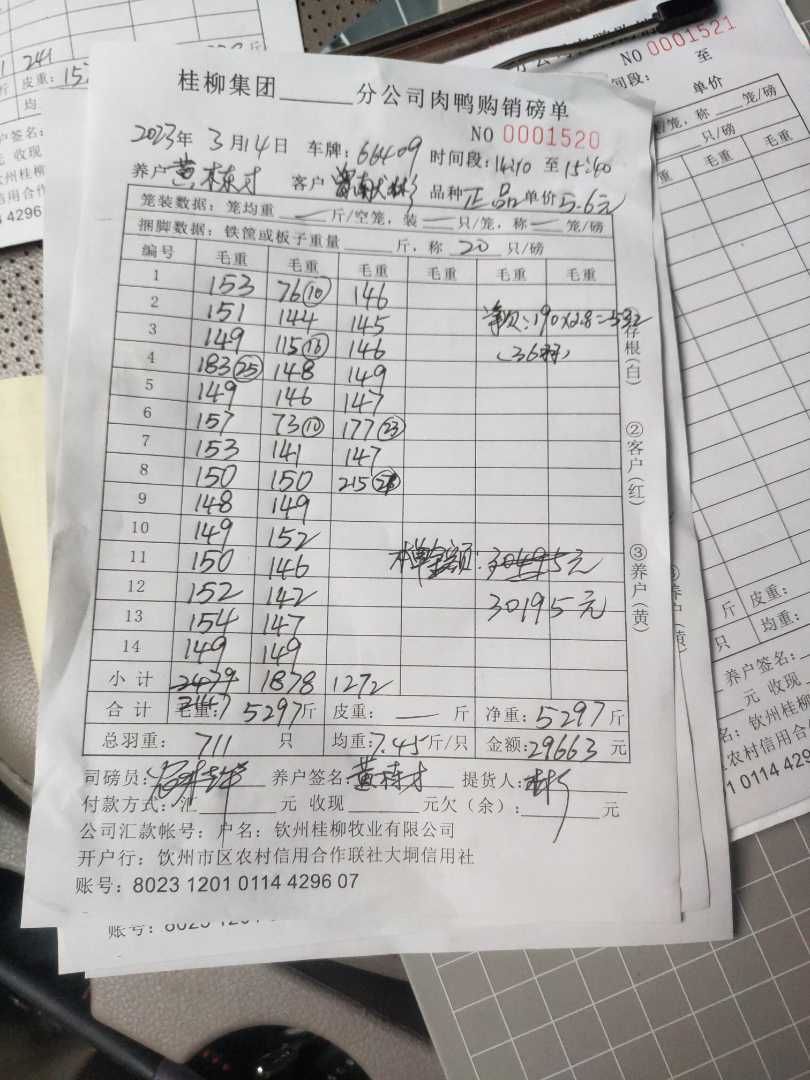 桂柳集团______分公司肉鸭购销磅单
NO 0001520
2023年 3月14日 车牌:66409 时间段:14:10 至15:40
养户 黄栋才 客户 品种 正品 单价5.6元
笼装数据: 笼均重 — 斤/空笼, 装 — 只/笼, 称 — 笼/磅
捆脚数据: 铁筐或板子重量______斤, 称 20 只/磅
编号 毛重 毛重 毛重 毛重 毛重 毛重
1 153 76⑩ 146
2 151 144 145
3 149 115⑯ 146
4 183㉕ 148 149
5 149 146 147
6 157 73⑩ 177㉓
7 153 141 147
8 150 150 215
9 148 149
10 149 152
11 150 146
12 152 142
13 154 147
14 149 149
190×2.8=532
30195元
小计 1878 1272
合计 毛重: 5297斤 皮重: — 斤 净重: 5297斤
总羽重: 711 只 均重:7.45斤/只 金额:29663 元
司磅员: 养户签名:黄栋才 提货人:
付款方式:汇______元 收现______元欠(余):______元
公司汇款帐号: 户名: 钦州桂柳牧业有限公司
开户行: 饮州市区农村信用合作联社大垌信用社
账号: 8023 1201 0114 4296 07
①存根(白)
②客户(红)
③养户(黄)
NO 0001521
至
单价
笼/磅
只/磅
毛重 毛重
斤 皮重:
只 均重:
养户签名:
元 收现
钦州桂柳
241
皮重: